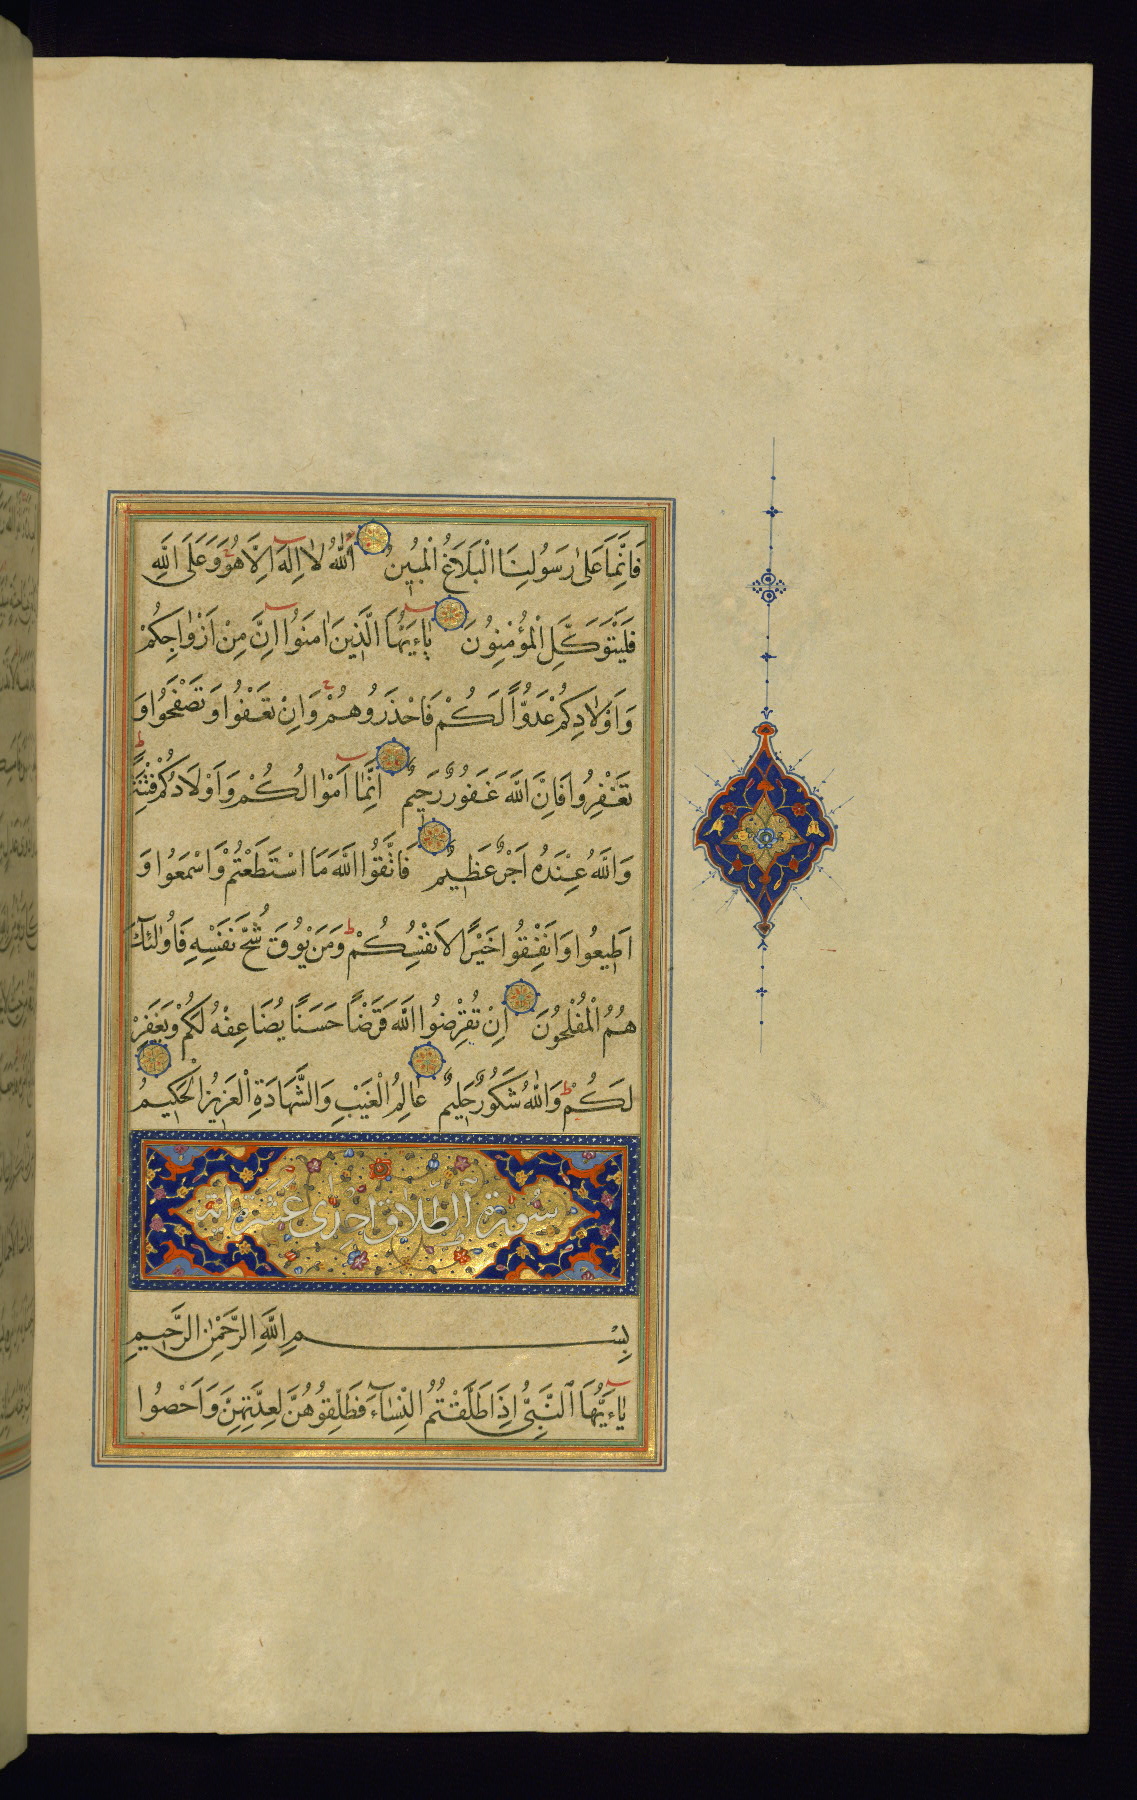 فَاِنَّمَا عَلٰى رَسُولِنَا الْبَلَاغُ الْمُبِينُ اَللّٰهُ لَا اِلٰهَ اِلَّا هُوَ وَعَلَى اللّٰهِ
فَلْيَتَوَكَّلِ الْمُؤْمِنُونَ يَاءَيُّهَا الَّذِينَ اٰمَنُوا اِنَّ مِنْ اَزْوَاجِكُمْ
وَاَوْلَادِكُمْ عَدُوًّا لَكُمْ فَاحْذَرُوهُمْ وَاِنْ تَعْفُوا وَتَصْفَحُوا وَ
تَغْفِرُوا فَاِنَّ اللّٰهَ غَفُورٌ رَحِيمٌ اَنَّمَا اَمْوَالُكُمْ وَاَوْلَادُكُمْ فِتْنَةٌ
وَاللّٰهُ عِنْدَهُ اَجْرٌ عَظِيمٌ فَاتَّقُوا اللّٰهَ مَا اسْتَطَعْتُمْ وَاسْمَعُوا وَ
اَطِيعُوا وَاَنْفِقُوا خَيْرًا لِاَنْفُسِكُمْ وَمَنْ يُوقَ شُحَّ نَفْسِهِ فَاُولٰئِكَ
هُمُ الْمُفْلِحُونَ اِنْ تُقْرِضُوا اللّٰهَ قَرْضًا حَسَنًا يُضَاعِفْهُ لَكُمْ وَيَغْفِرْ
لَكُمْ وَاللّٰهُ شَكُورٌ حَلِيمٌ عَالِمُ الْغَيْبِ وَالشَّهَادَةِ الْعَزِيزُ الْحَكِيمُ
سورة الطلاق احدى عشرة اية
بِسْمِ اللّٰهِ الرَّحْمٰنِ الرَّحِيمِ
يَاءَيُّهَا النَّبِىُّ اِذَا طَلَّقْتُمُ النِّسَاءَ فَطَلِّقُوهُنَّ لِعِدَّتِهِنَّ وَاَحْصُوا